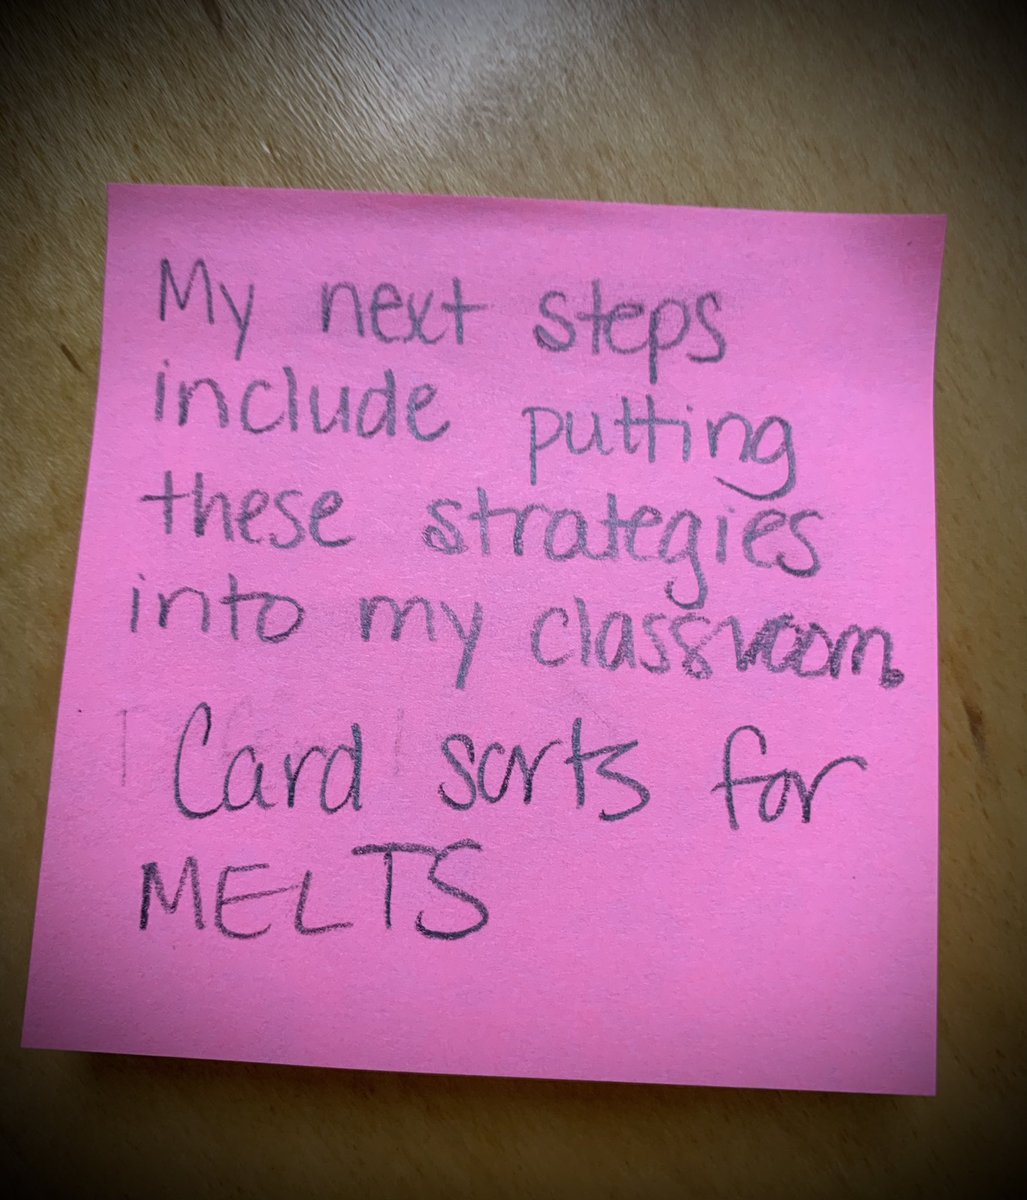 My next steps
include putting
these strategies
into my classroom.
Card sorts for
MELTS